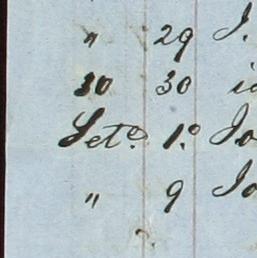 " 29 J.
30 30
Setᵉ 1º Jo
" 9 Jo